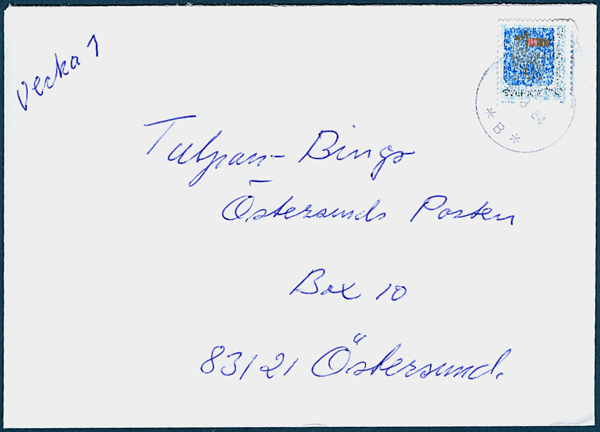 Vecka 1
Tulpan-Bingo
Östersunds Posten
Box 10
83121 Östersund.
* B *